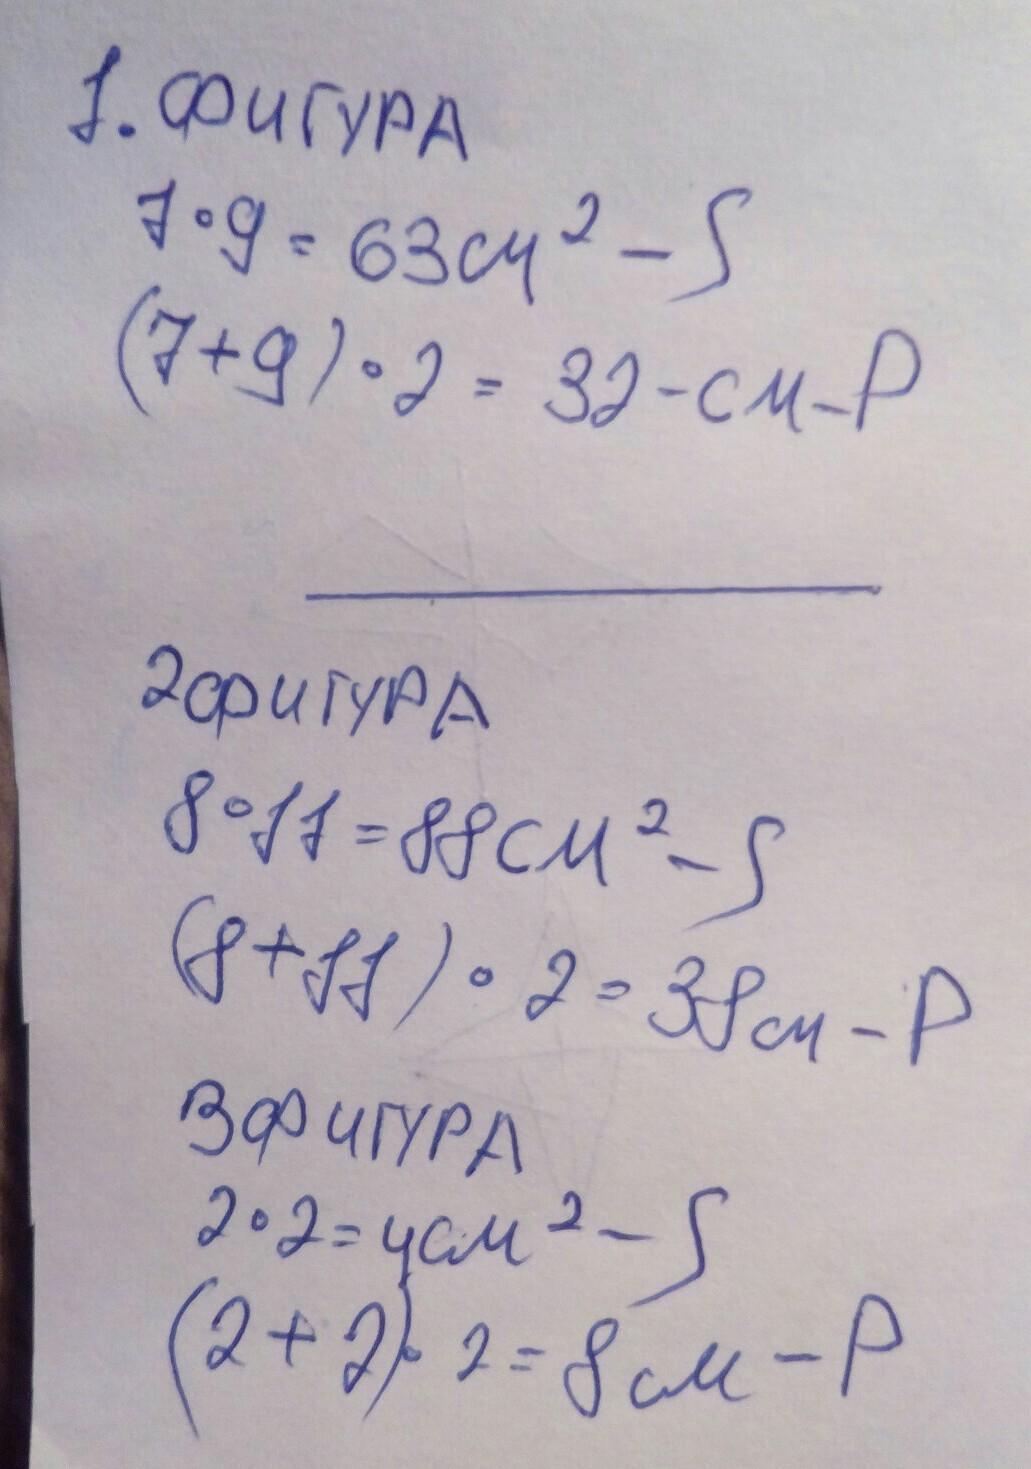 1. ФИГУРА
7 • 9 = 63 см² - S
(7+9) • 2 = 32 - см - P
2 ФИГУРА
8 • 11 = 88 см² - S
(8+11) • 2 = 38 см - P
3 ФИГУРА
2 • 2 = 4 см² - S
(2+2) • 2 = 8 см - P